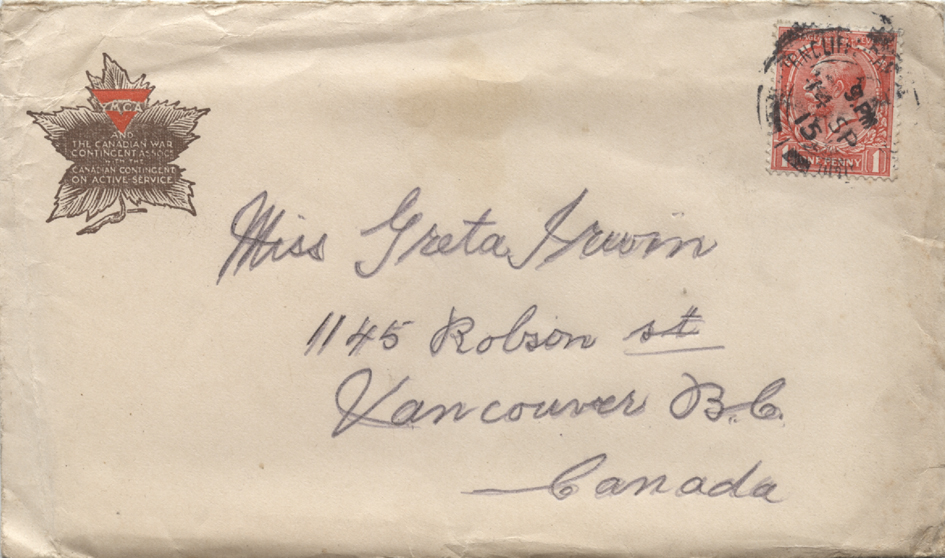 YMCA
AND
THE CANADIAN WAR
CONTINGENT ASSOC
WITH THE
CANADIAN CONTINGENT
ON ACTIVE SERVICE
14 SP
15
ONE PENNY 1
Miss Greta Irwin
1145 Robson st
Vancouver B.C.
Canada